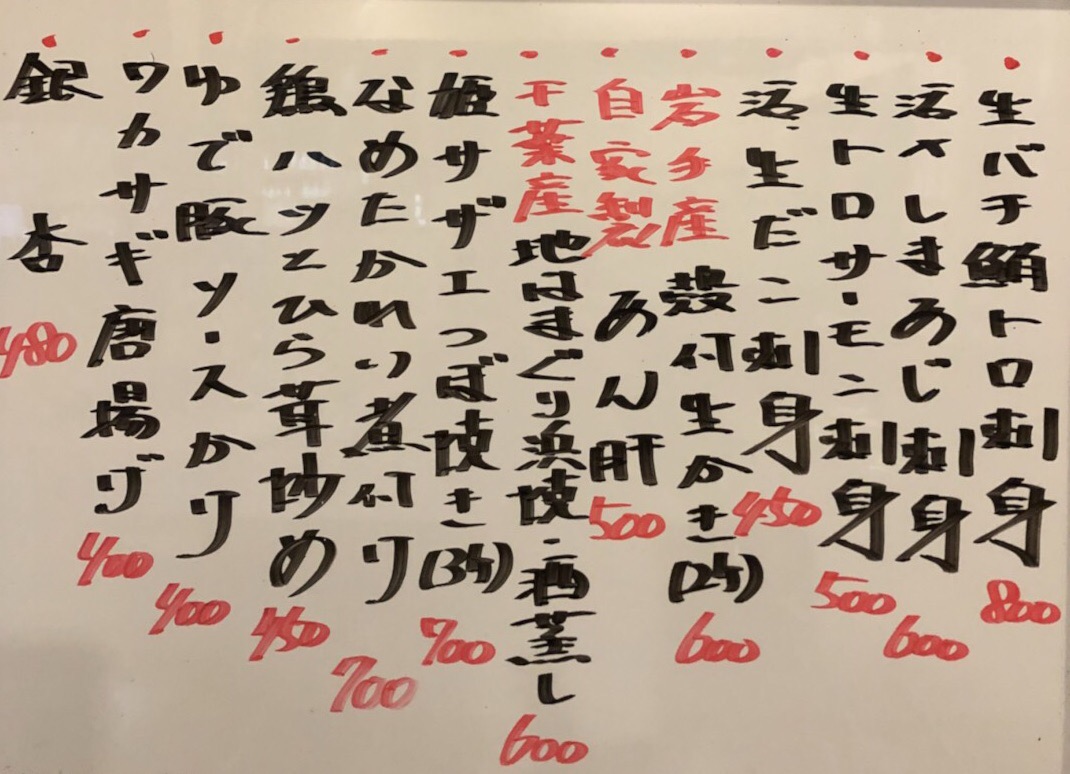 ・生バチ鮪トロ刺身 800
・活〆しまあじ刺身 600
・生トロサーモン刺身 500
・活、生だこ刺身 450
・岩手産 殻付生かき(2ケ) 600
・自家製 あん肝 500
・千葉産 地はまぐり浜焼・酒蒸し 600
・姫サザエつぼ焼き(3ケ) 700
・なめたかれい煮付け 700
・鶏ハツとひら茸炒め 450
・ゆで豚ソースかけ 400
・ワカサギ唐揚げ 400
・銀杏 480